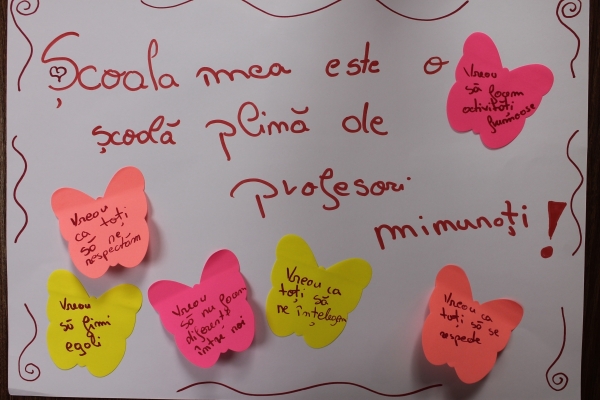 Școala mea este o
școală plină de
profesori
minunați!
Vreau
să facem
activități
frumoase
Vreau
ca toți
să ne
respectăm
Vreau
să fim
egali
Vreau
să nu facem
diferențe
între noi
Vreau ca
toți să
ne înțelegem
Vreau ca
toți să se
respecte